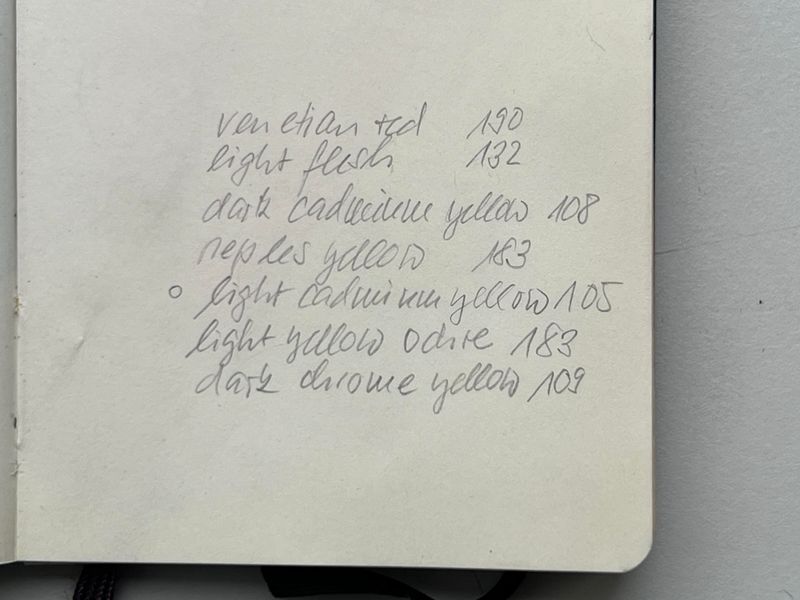 venetian red 190
light flesh 132
dark cadmium yellow 108
neples yellow 183
light cadmium yellow 105
light yellow ochre 183
dark chrome yellow 109